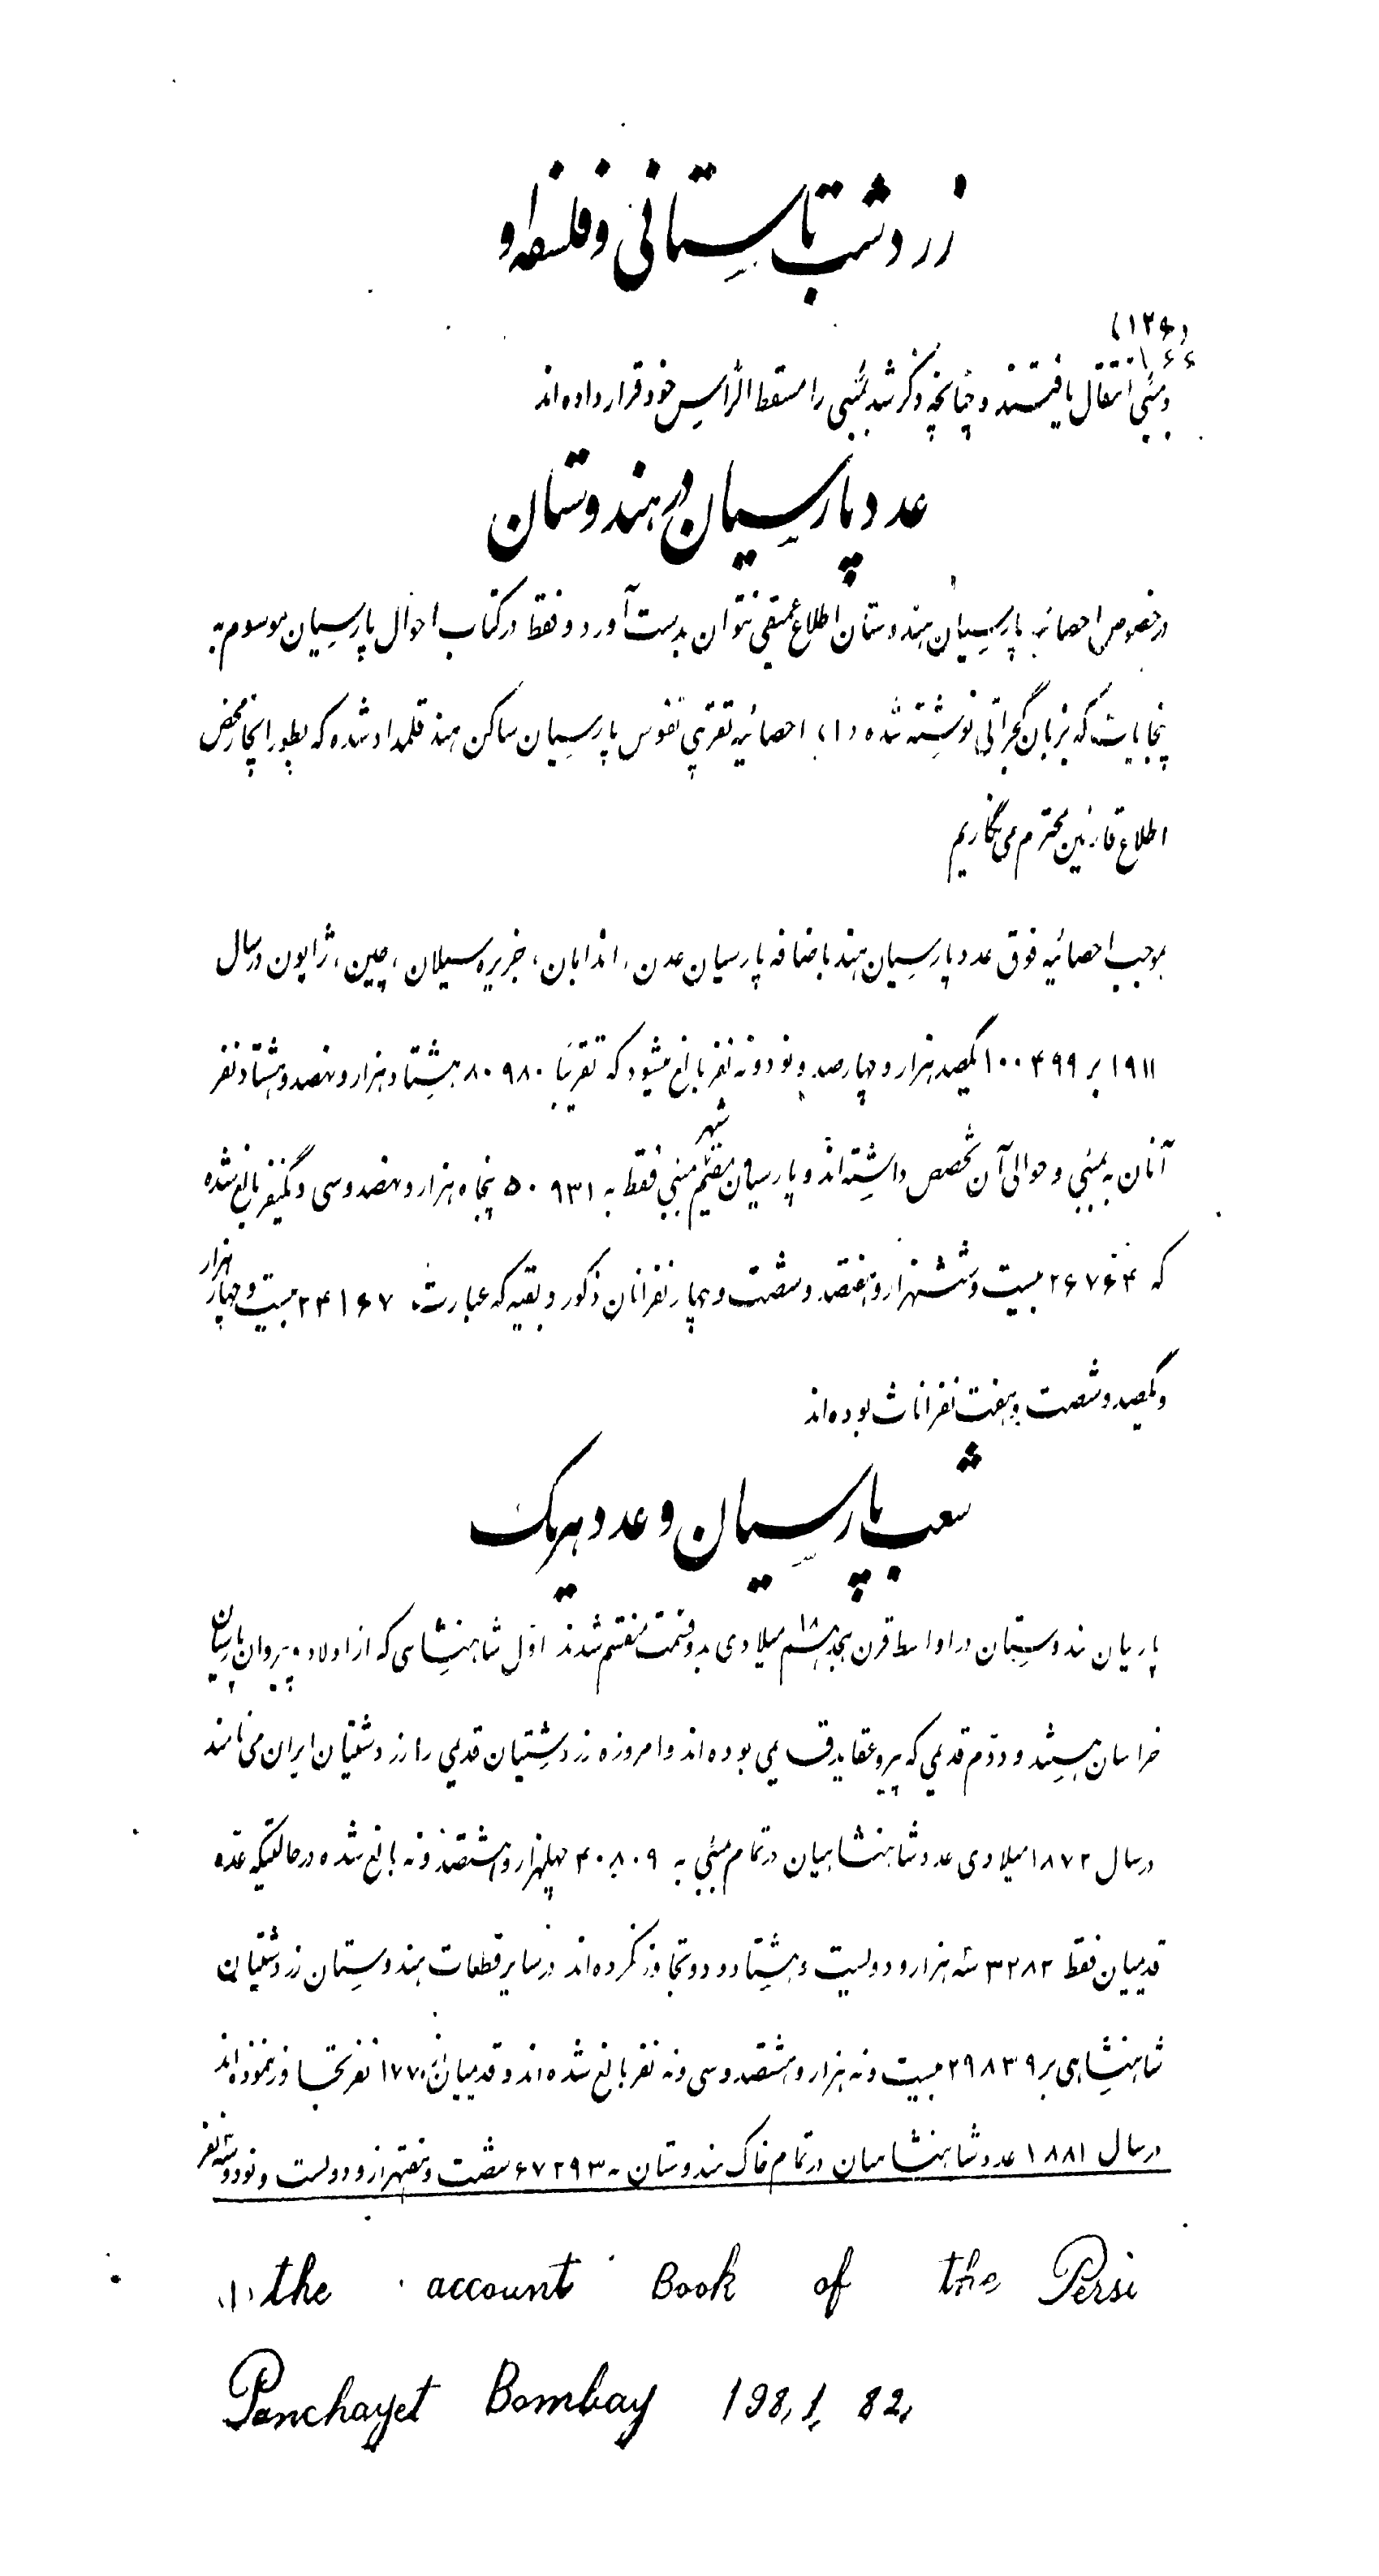 زردشت باستانی و فلسفه او
(۱۲۶)
و بمبئی انتقال یافتند و چنانچه ذکر شد بمبئی را مسقط الرأس خود قرار داده اند
عدد پارسیان در هندوستان
در خصوص احصائیه پارسیان هندوستان اطلاع عمیقی نتوان بدست آورد و فقط در کتاب احوال پارسیان موسوم به
پنچایات که بزبان گجراتی نوشته شده (۱) احصائیه تقریبی نفوس پارسیان ساکن هند قلمداد شده که بطور ایجاز محض
اطلاع قارئین محترم می نگاریم
بموجب احصائیه فوق عدد پارسیان هند باضافه پارسیان عدن، اندابان، جزیره سیلان، چین، ژاپون در سال
۱۹۱۱ بر ۱۰۰۴۹۹ یکصد هزار و چهارصد و نود و نه نفر بالغ میشود که تقریبا ۸۰۹۸۰ هشتاد هزار و نهصد و هشتاد نفر
آنان به بمبئی و حوالی آن تخصص داشته اند و پارسیان مقیم شهر بمبئی فقط به ۵۰۹۳۱ پنجاه هزار و نهصد و سی و یکنفر بالغ شده
که ۲۶۷۶۴ بیست و ششهزار و هفتصد و شصت و چهار نفر انان ذکور و بقیه که عبارت ۲۴۱۶۷ بیست و چهار هزار
و یکصد و شصت و هفت نفر اناث بوده اند
شعب پارسیان و عدد هر یک
پارسیان هندوستان در اواسط قرن هجدهم ۱۸ میلادی بدو قسمت منقسم شدند اوّل شاهنشاهی که از اولاد و پیروان پارسیان
خراسان هستند و دوّم قدیمی که پیرو عقاید قدیمی بوده اند و امروزه زردشتیان قدیمی را زردشتیان ایران می نامند
در سال ۱۸۷۲ میلادی عدد شاهنشاهیان در تمام بمبئی به ۴۰۸۰۹ چهلهزار و هشتصد و نه بالغ شده در حالتیکه عدّه
قدیمیان فقط ۳۲۸۲ سه هزار و دویست و هشتاد و دو تجاوز نکرده اند در سایر قطعات هندوستان زردشتیان
شاهنشاهی بر ۲۹۸۳۹ بیست و نه هزار و هشتصد و سی و نه نفر بالغ شده اند و قدیمیان از ۱۷۷۰ نفر تجاوز ننموده اند
در سال ۱۸۸۱ عدد شاهنشاهیان در تمام خاک هندوستان به ۶۷۲۹۳ شصت و هفتهزار و دویست و نود و سه نفر
(۱) the account Book of the Persi
Panchayet Bombay 198, 1, 82,